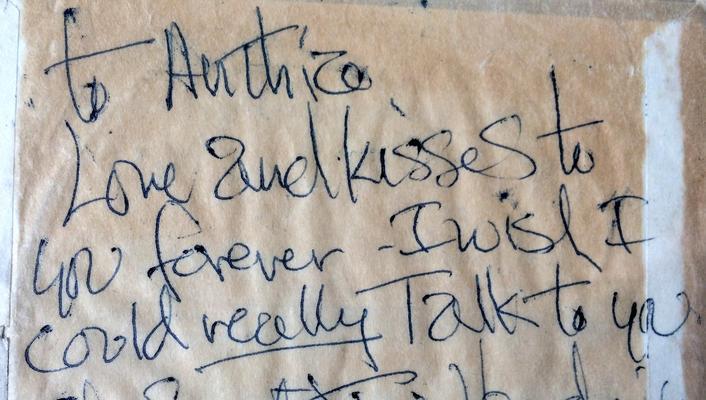 to Anthea
Love and kisses to
you forever - I wish I
could really Talk to you